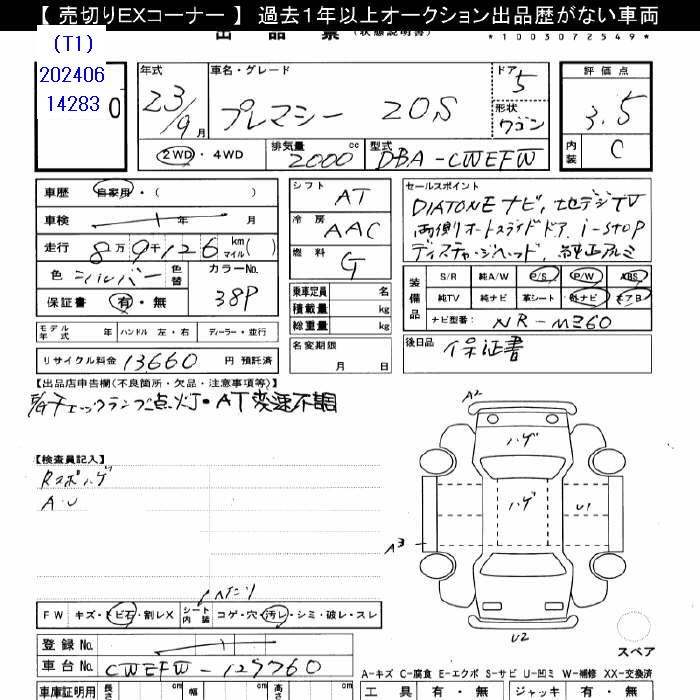 【 売切りEXコーナー 】 過去1年以上オークション出品歴がない車両
出 品 票 (状態説明書)
*1003072549*
(T1)
202406
14283
0
年式 車名・グレード ドア 評価点
23/9月 プレマシー 20S 5 3.5
形状 ワゴン
2WD・4WD 排気量 2000 cc 型式 DBA-CWEFW 内装 C
車歴 自家用・( )
車検 年 月
走行 8万9千126 km マイル( )
色 シルバー 色替 カラーNo. 38P
保証書 有・無
モデル年式 年 ハンドル 左・右 ディーラー・並行
リサイクル料金 13660 円 預託済
シフト AT
冷房 AAC
燃料 G
乗車定員 名
積載量 kg
総重量 kg
名変期限 月 日
セールスポイント
DIATONEナビ、地デジTV
両側オートスライドドア、i-stop
ディスチャージヘッド、純正アルミ
装備品 S/R 純A/W P/S P/W ABS
純TV 純ナビ 革シート 外ナビ エアB
ナビ型番: NR-MZ60
後日品 保証書
【出品店申告欄(不良箇所・欠品・注意事項等)】
チェックランプ点灯・AT変速不調
【検査員記入】
Rスポハゲ
A.U
FW キズ・トビ石・割レX シート内装 コゲ・穴・汚レ・シミ・破レ・スレ
A2
ハゲ
ハゲ
U1
A3
U2
スペア
登録No.
車台No. CWEFW-129760
A-キズ C-腐食 E-エクボ S-サビ U-凹ミ W-補修 XX-交換済
車庫証明用 長さ cm 幅 cm 高さ cm 工具 有・無 ジャッキ 有・無